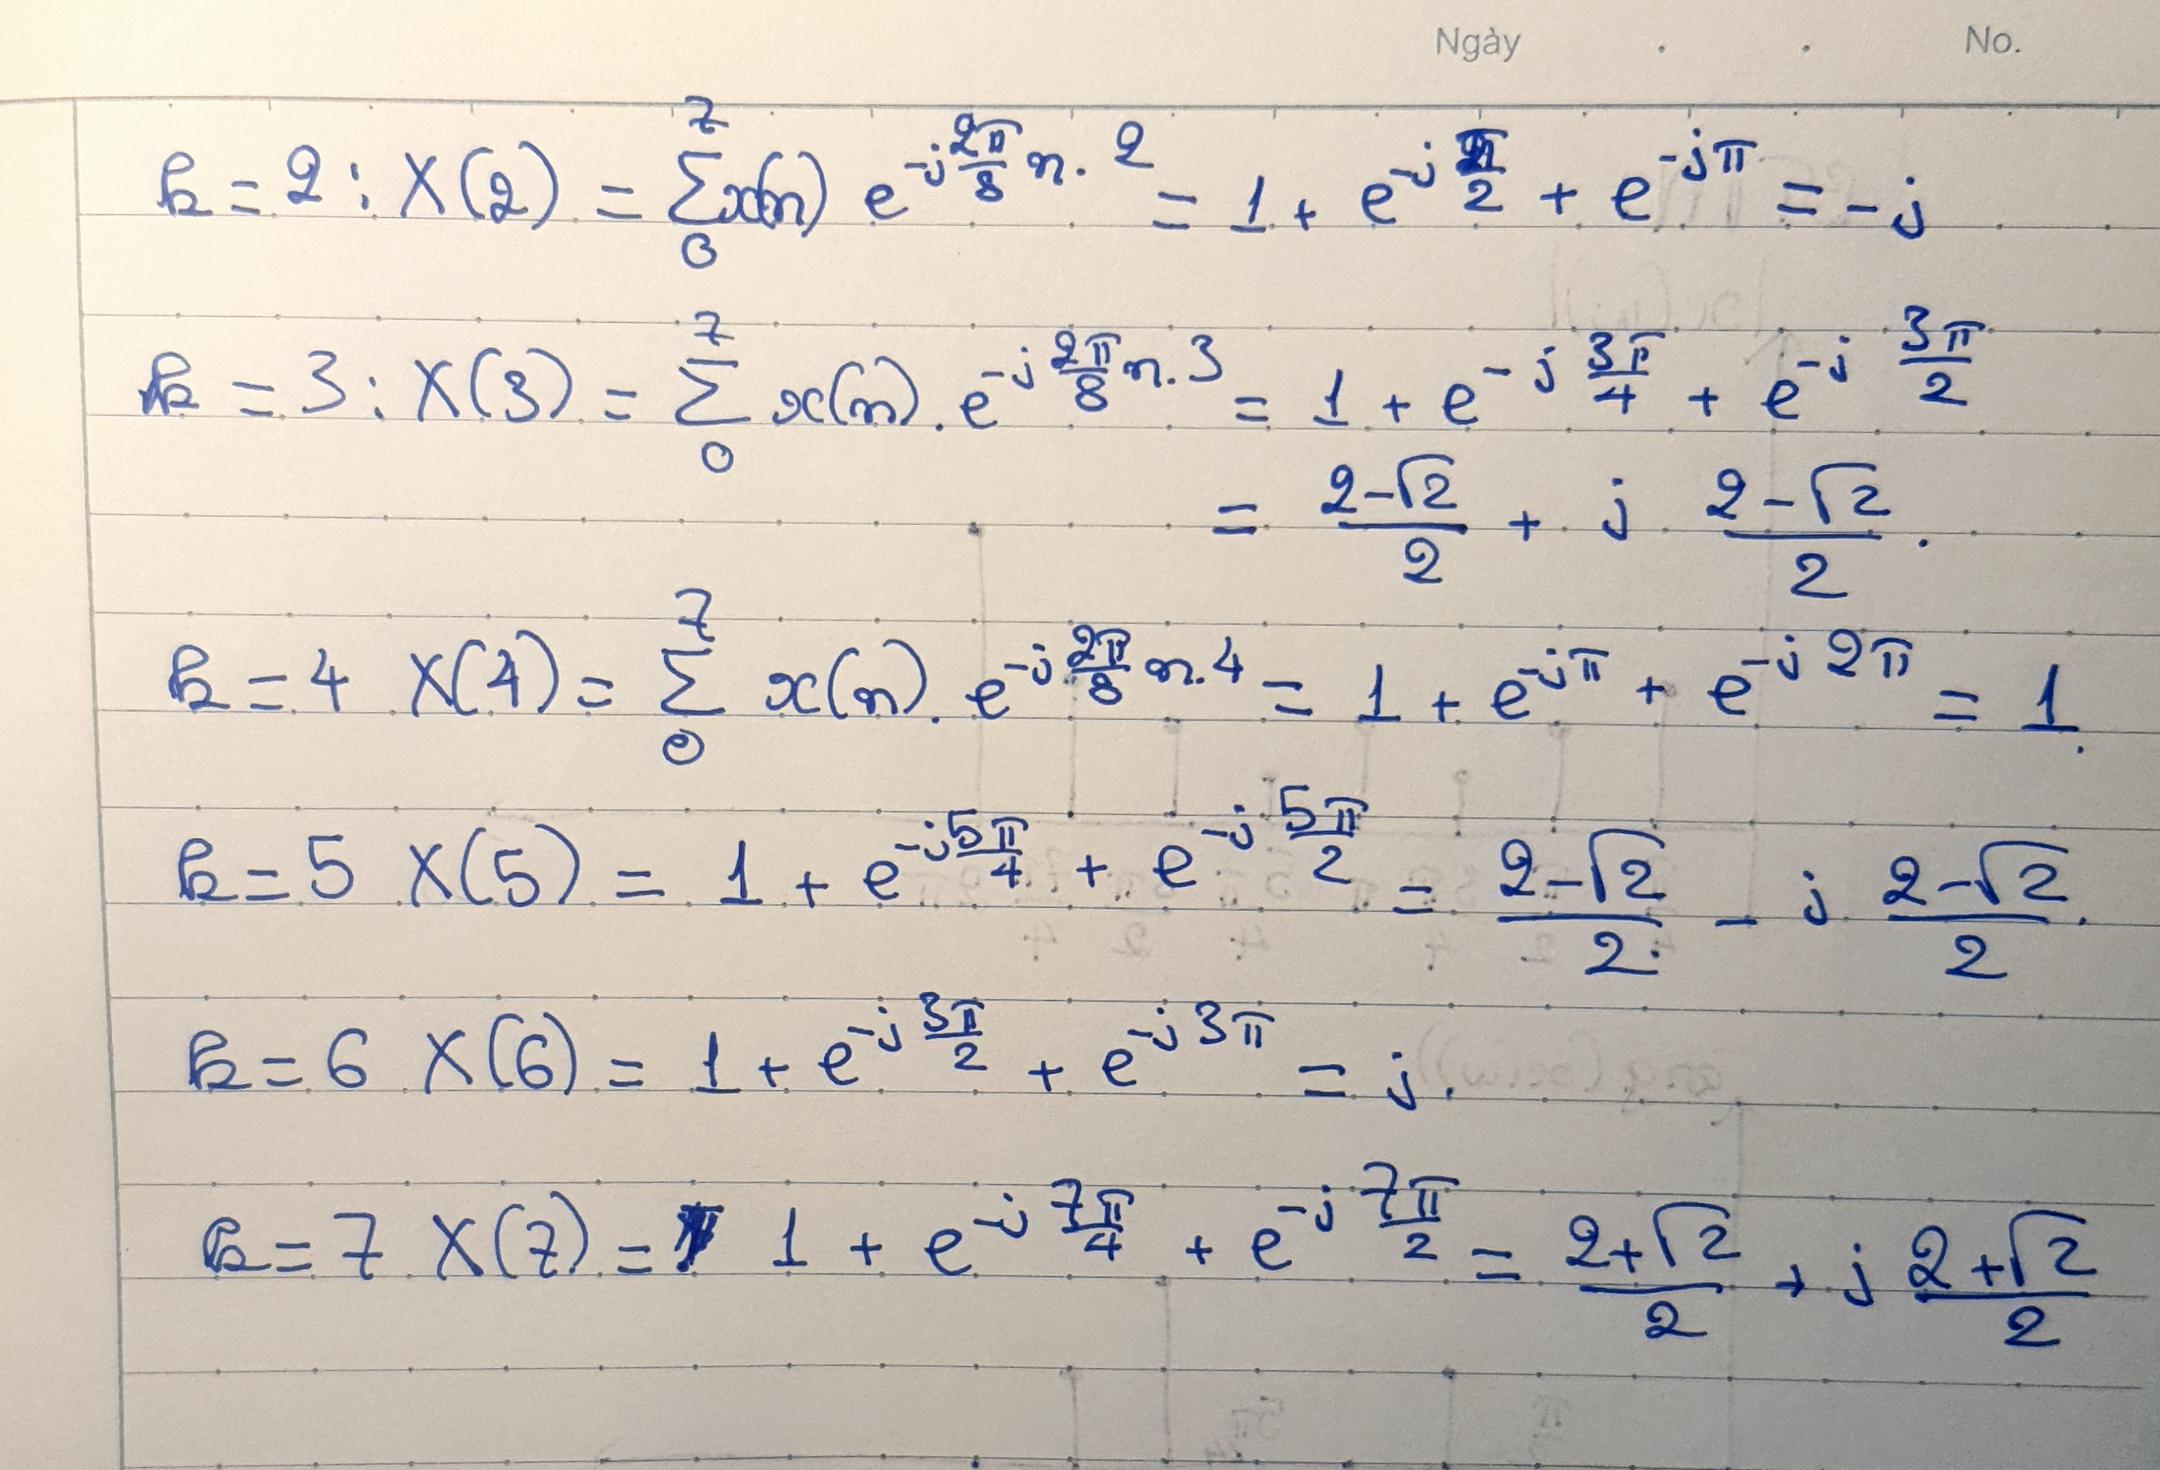 Ngày . . No.
k = 2 : X(2) = \sum_{0}^{7} x(n) e^{-j\frac{2π}{8} n. 2} = 1 + e^{-j\frac{π}{2}} + e^{-jπ} = -j
k = 3 : X(3) = \sum_{0}^{7} x(n) . e^{-j\frac{2π}{8} n.3} = 1 + e^{-j\frac{3π}{4}} + e^{-j\frac{3π}{2}}
= \frac{2-√2}{2} + j \frac{2-√2}{2} .
k = 4 X(4) = \sum_{0}^{7} x(n) . e^{-j\frac{2π}{8} n.4} = 1 + e^{-jπ} + e^{-j2π} = 1.
k = 5 X(5) = 1 + e^{-j\frac{5π}{4}} + e^{-j\frac{5π}{2}} = \frac{2-√2}{2} - j \frac{2-√2}{2} .
k = 6 X(6) = 1 + e^{-j\frac{3π}{2}} + e^{-j3π} = j .
k = 7 X(7) = 1 + e^{-j\frac{7π}{4}} + e^{-j\frac{7π}{2}} = \frac{2+√2}{2} + j \frac{2+√2}{2}